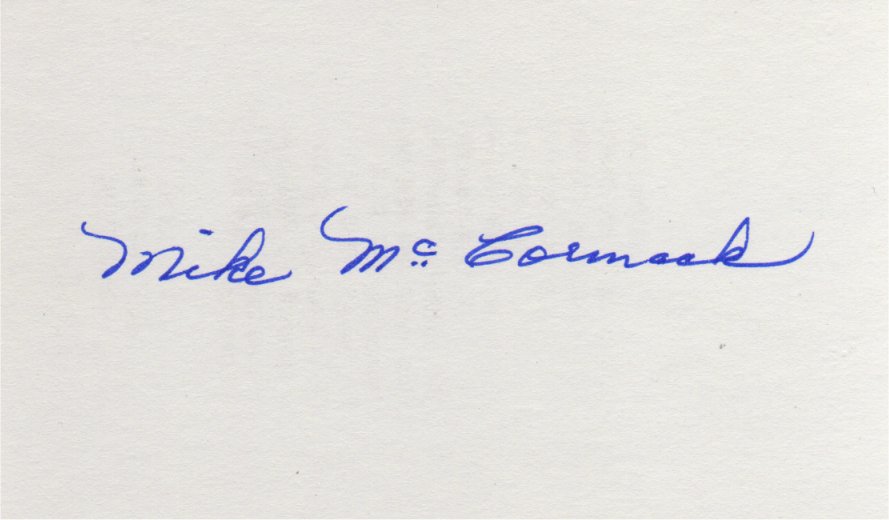 Mike McCormack